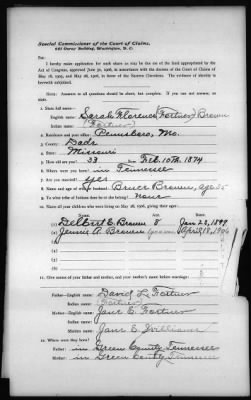 Special Commissioner of the Court of Claims,
Washington, D. C.
SIR:
I hereby make application for such share as may be due me of the fund appropriated by the
Act of Congress, approved June 30, 1906, in accordance with the decrees of the Court of Claims of
May 18, 1905, and May 28, 1906, in favor of the Eastern Cherokees. The evidence of identity is
herewith subjoined.
1. State full name—
English name: Sarah Florence (Fortner) Brown
Indian name: (Fortner)
2. Residence and post office: Pennsboro, Mo.
3. County: Dade
4. State: Missouri
5. How old are you? 33 Feb. 10th 1874
6. Where were you born? in Tennessee
7. Are you married? yes
8. Name and age of wife or husband: Bruce Brown, age 35
9. To what tribe of Indians does he or she belong? None
10. Name all your children who were living on May 28, 1906, giving their ages:
(1) Delbert E. Brown 8 Jan 22, 1899
(2) Brown April 18, 1906
(3)
(4)
(5)
(6)
11. Give names of your father and mother, and your mother's name before marriage:
Father—English name: David L. Fortner
Indian name: Fortner
Mother—English name: Jane E. Fortner
Indian name:
Maiden name: Jane E. Williams
12. Where were they born?
Father: in Green County Tennessee
Mother: in Green County Tennessee